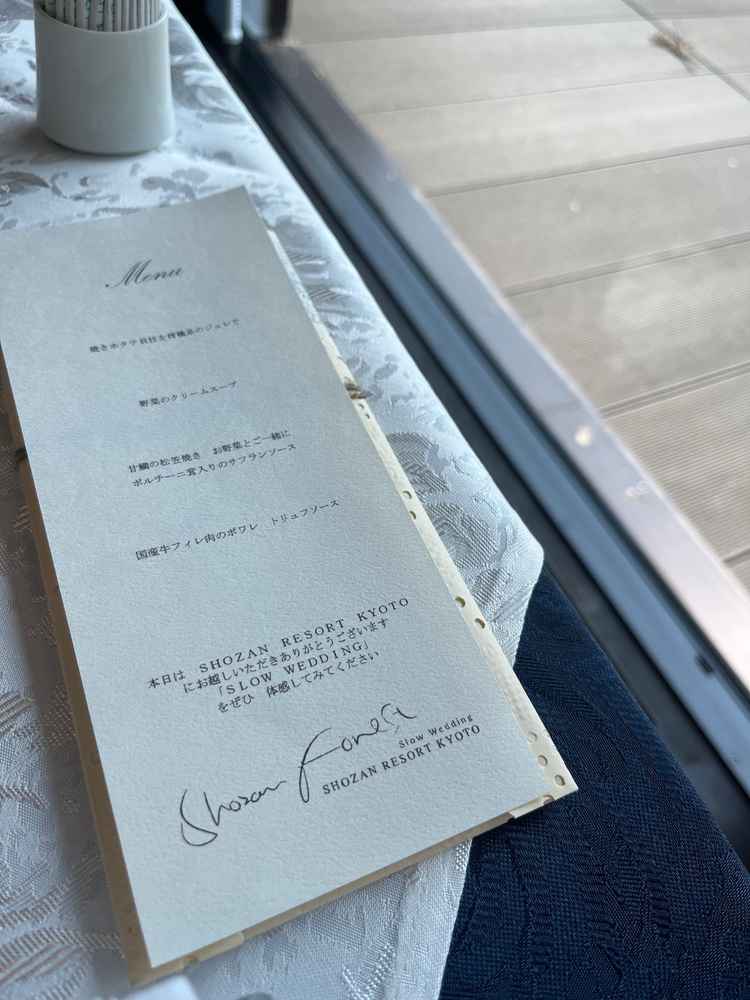 Menu
焼きホタテ貝柱を柑橘系のジュレで
野菜のクリームスープ
甘鯛の松笠焼き お野菜とご一緒に
ポルチーニ茸入りのサフランソース
国産牛フィレ肉のポワレ トリュフソース
本日は SHOZAN RESORT KYOTO
にお越しいただきありがとうございます
「SLOW WEDDING」
をぜひ 体感してみてください
Shozan Forest
Slow Wedding
SHOZAN RESORT KYOTO